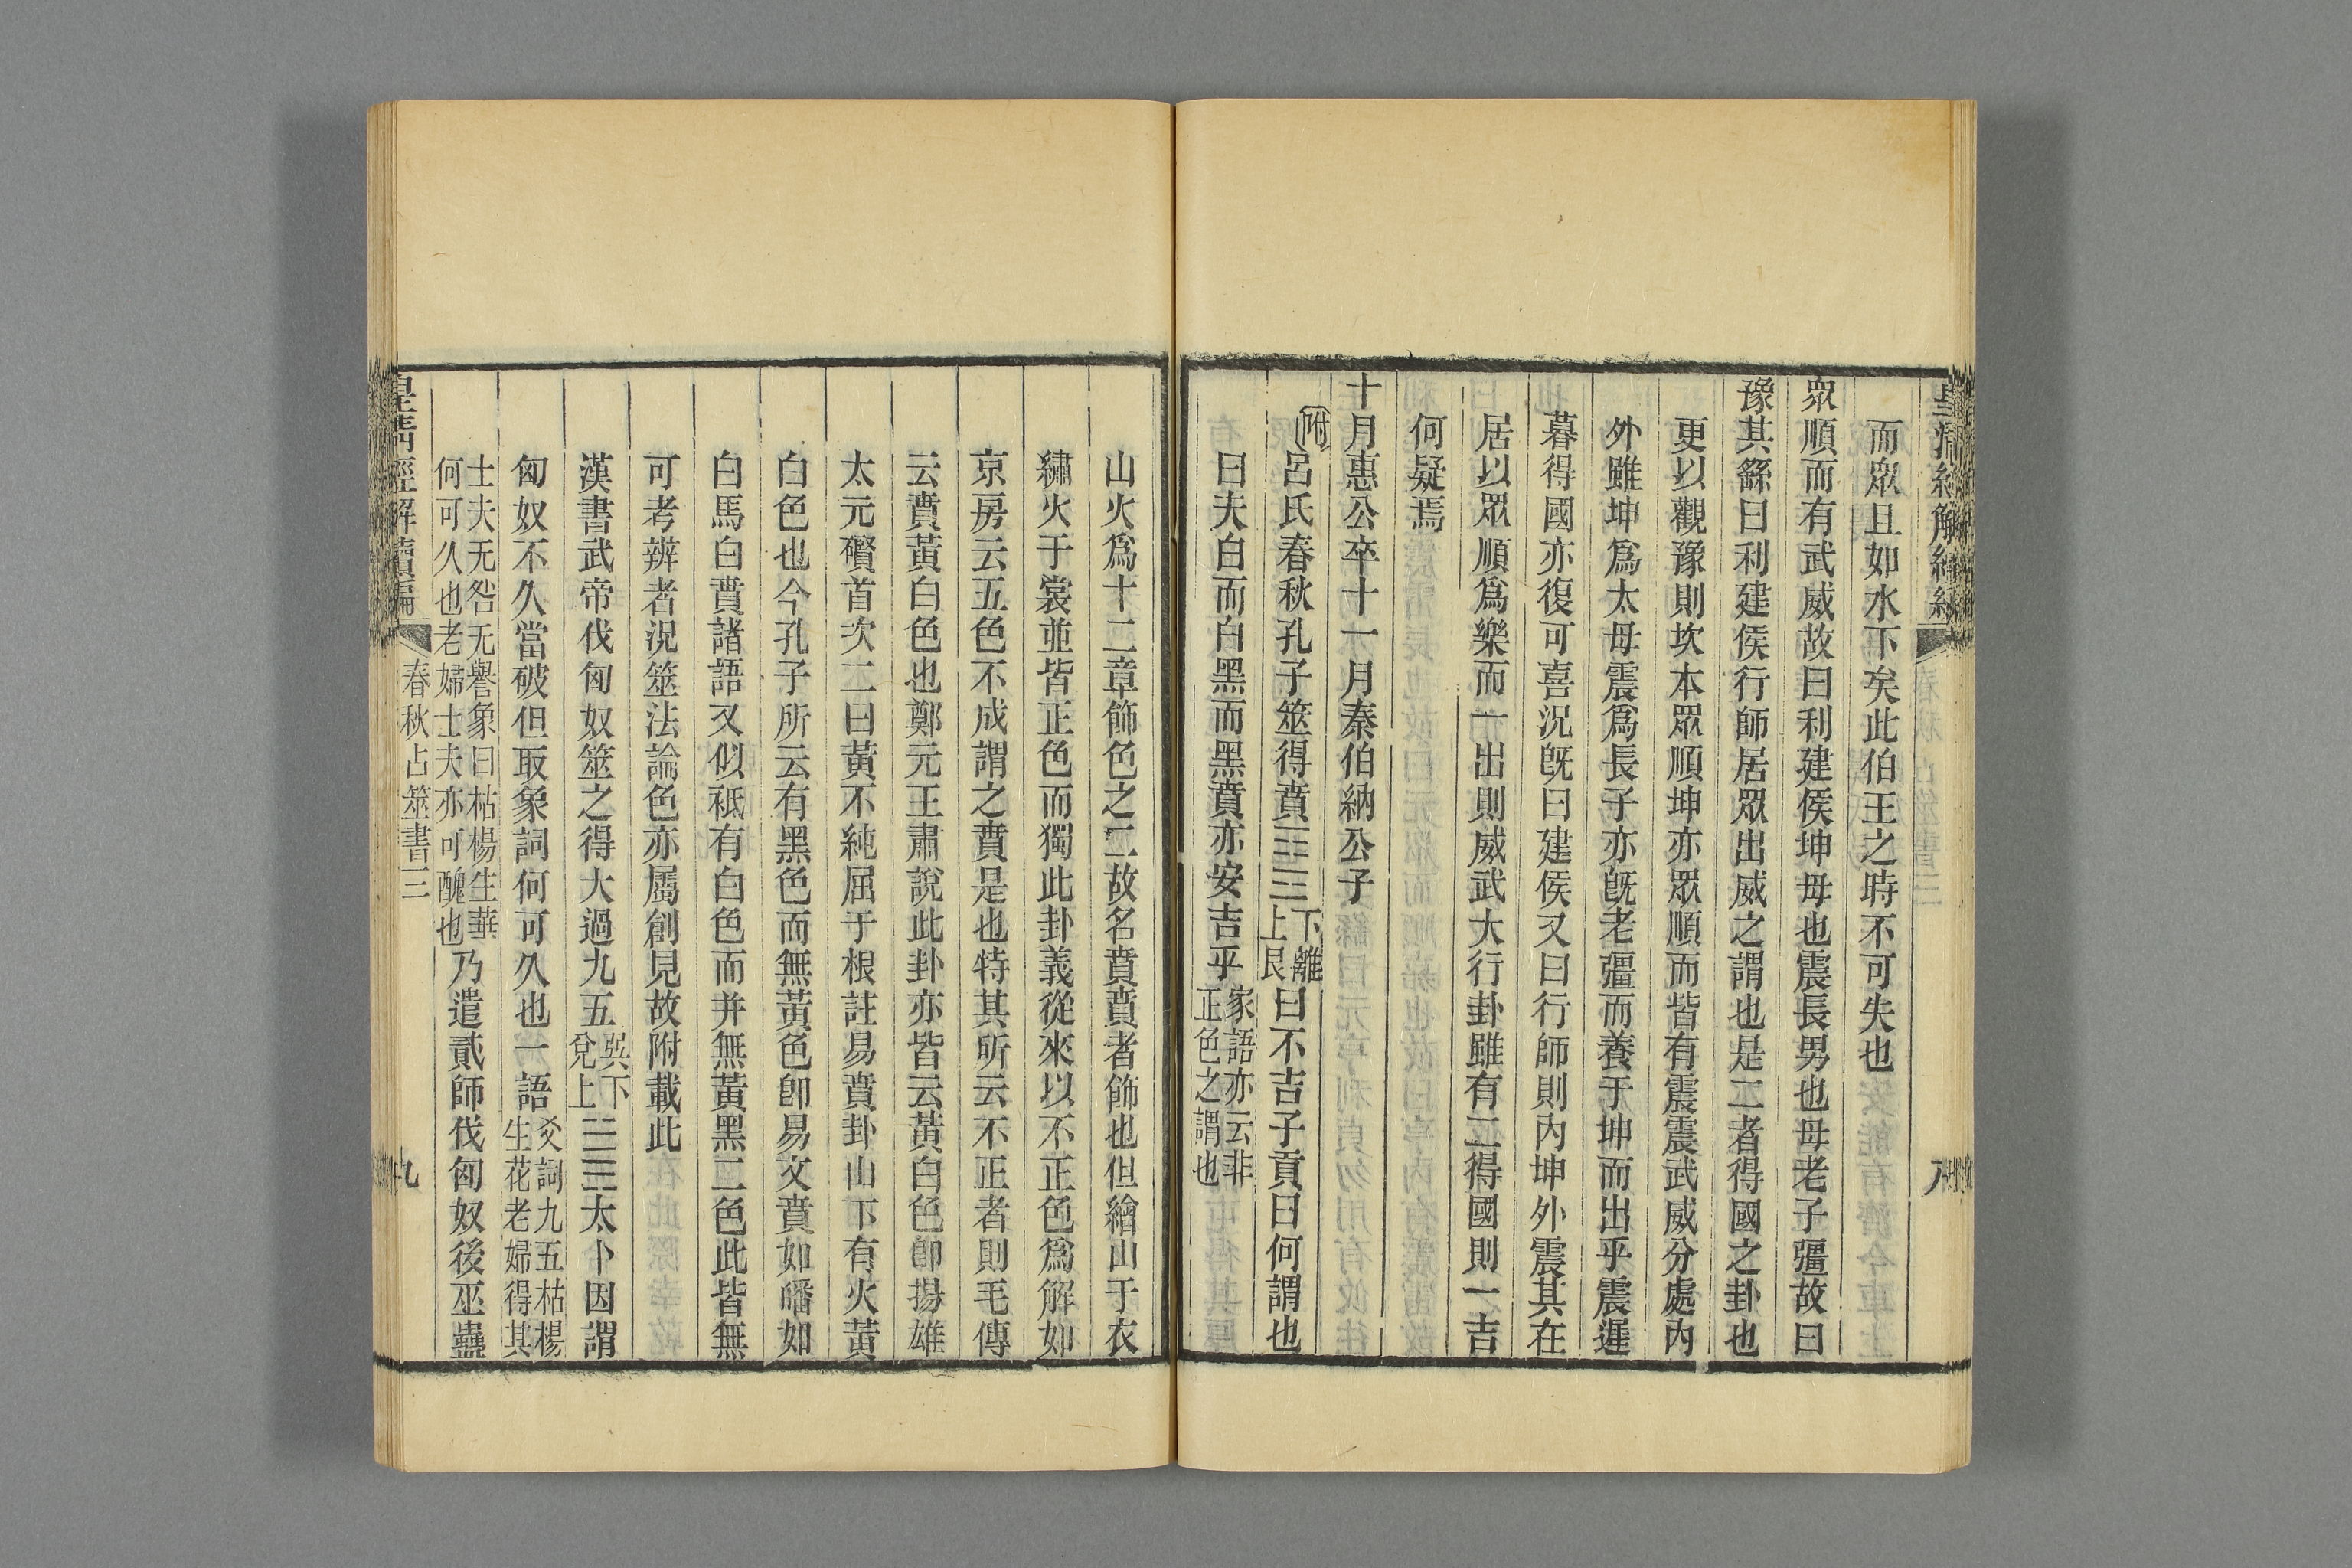 而眾且如水下矣此伯王之時不可失也
眾順而有武威故曰利建侯坤母也震長男也母老子彊故曰
豫其繇曰利建侯行師居眾出威之謂也是二者得國之卦也
更以觀豫則坎本眾順坤亦眾順而皆有震震武威分處內
外雖坤爲太母震爲長子亦旣老彊而養于坤而出乎震遲
暮得國亦復可喜況旣曰建侯又曰行師則內坤外震其在
居以眾順爲樂而一出則威武大行卦雖有二得國則一吉
何疑焉
十月惠公卒十一月秦伯納公子
附呂氏春秋孔子筮得賁下離上艮曰不吉子貢曰何謂也
曰夫白而白黑而黑賁亦安吉乎家語亦云非正色之謂也
山火爲十二章飾色之二故名賁賁者飾也但繪山于衣
繡火于裳並皆正色而獨此卦義從來以不正色爲解如
京房云五色不成謂之賁是也特其所云不正者則毛傳
云賁黃白色也鄭元王肅說此卦亦皆云黃白色卽揚雄
太元礥首次二曰黃不純屈于根註易賁卦山下有火黃
白色也今孔子所云有黑色而無黃色卽易文賁如皤如
白馬白賁諸語又似祗有白色而并無黃黑二色此皆無
可考辨者況筮法論色亦屬創見故附載此
漢書武帝伐匈奴筮之得大過九五巽下兌上太卜因謂
匈奴不久當破但取象詞何可久也一語爻詞九五枯楊生花老婦得其
士夫无咎无譽象曰枯楊生華何可久也老婦士夫亦可醜也乃遣貳師伐匈奴後巫蠱
皇淸經解續編
春秋占筮書三
九